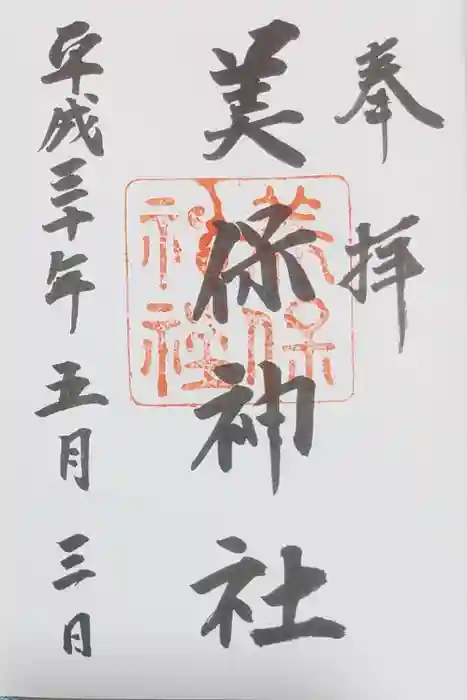 奉拝
美保神社
美保
神社
平成三十年五月三日